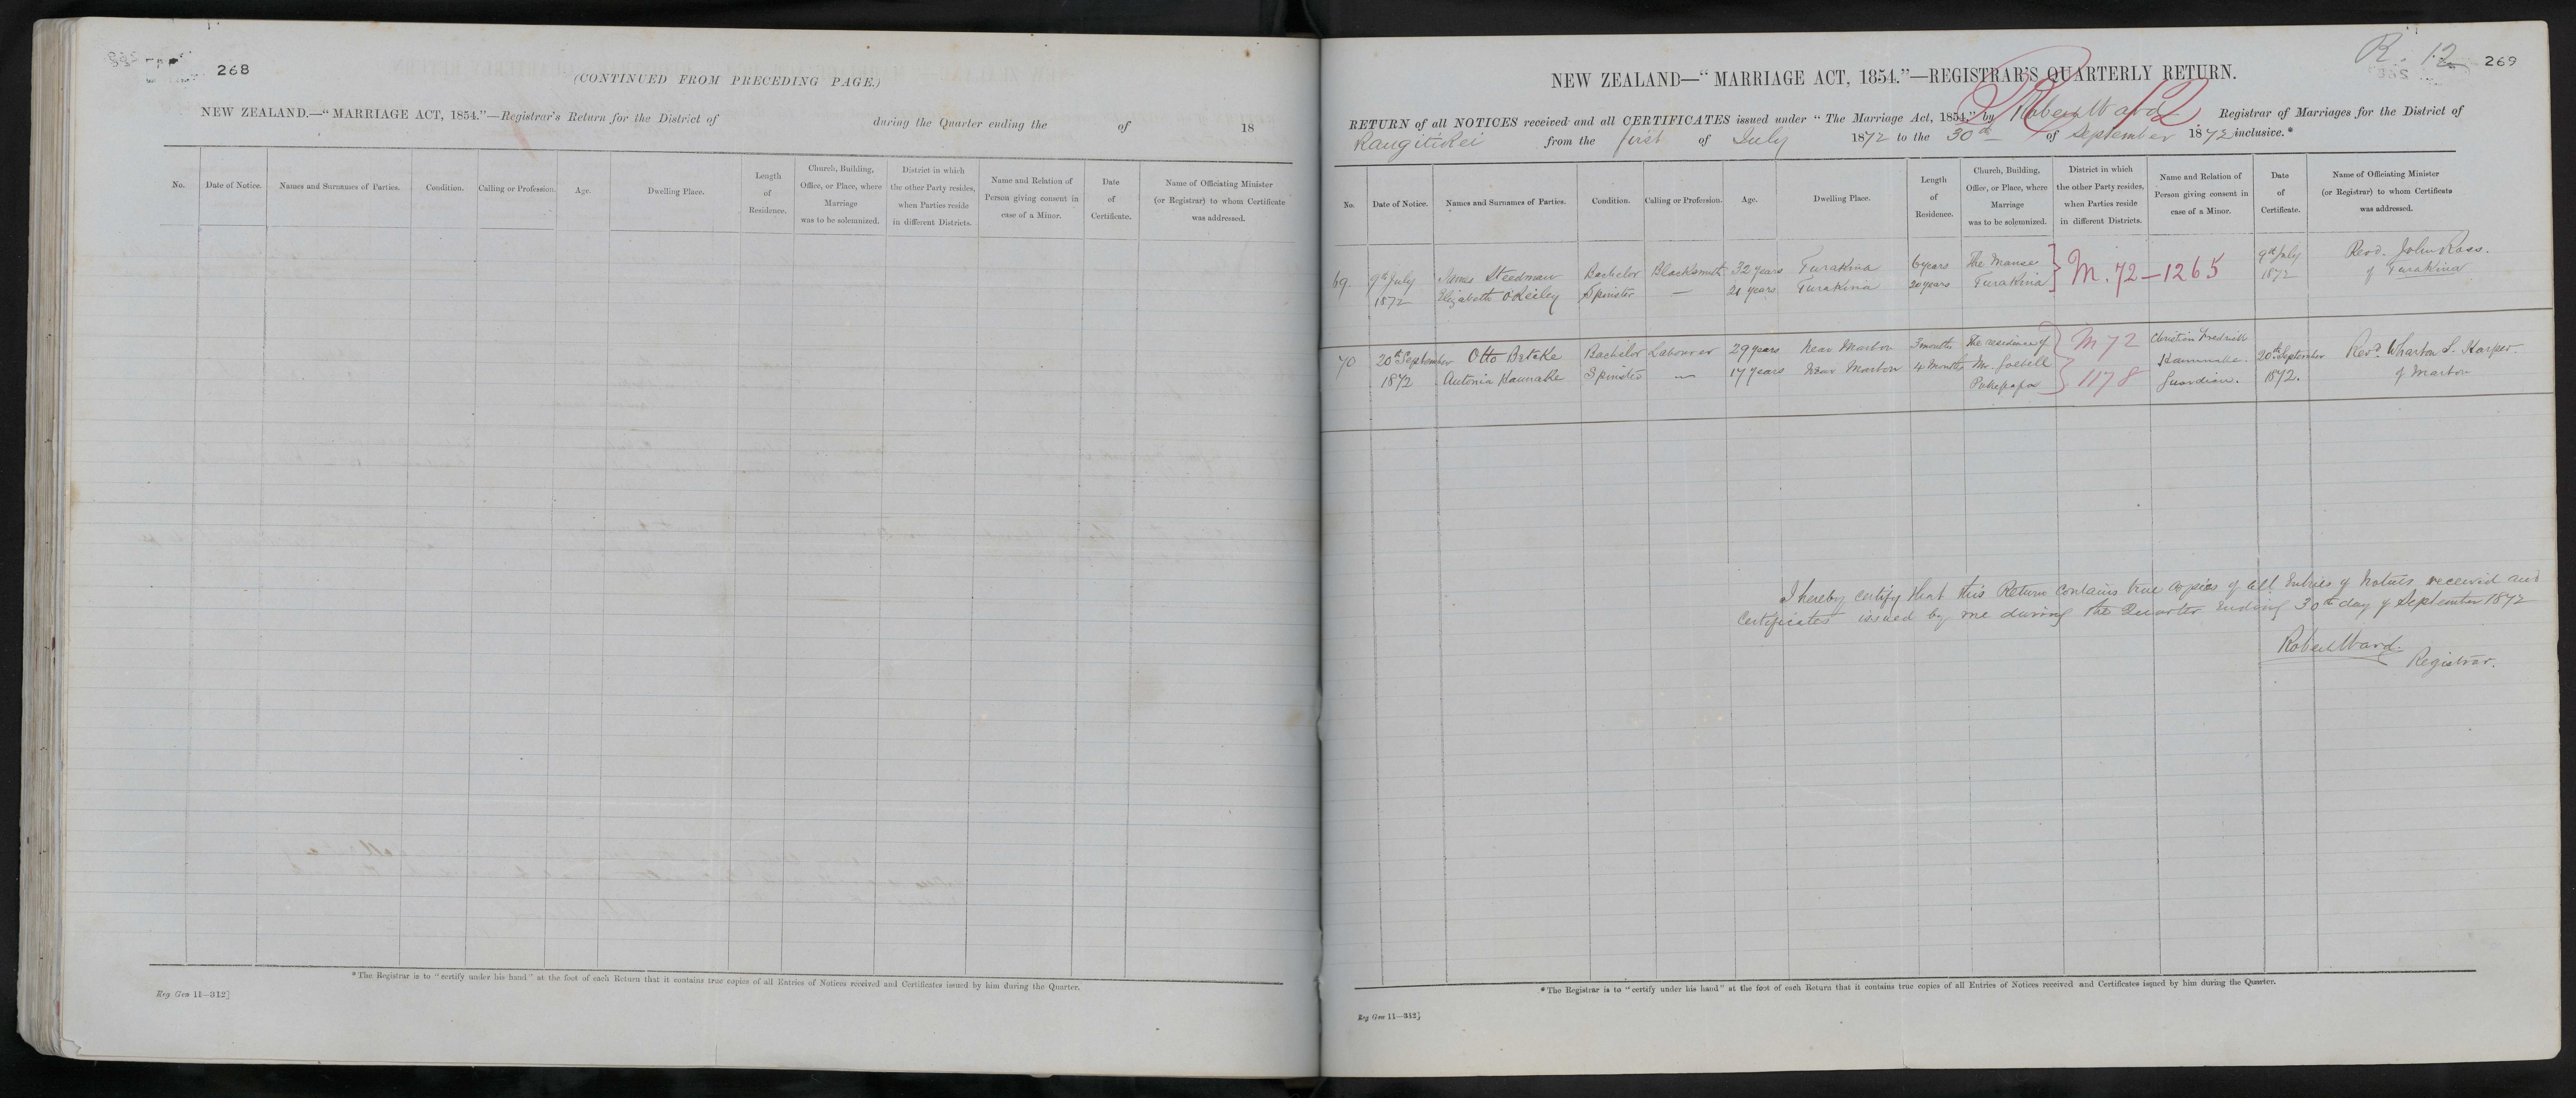 268
(CONTINUED FROM PRECEDING PAGE.)
NEW ZEALAND.—"MARRIAGE ACT, 1854."—Registrar's Return for the District of during the Quarter ending the of 18
No. Date of Notice. Names and Surnames of Parties. Condition. Calling or Profession. Age. Dwelling Place. Length of Residence. Church, Building, Office, or Place, where Marriage was to be solemnized. District in which the other Party resides, when Parties reside in different Districts. Name and Relation of Person giving consent in case of a Minor. Date of Certificate. Name of Officiating Minister (or Registrar) to whom Certificate was addressed.
*The Registrar is to "certify under his hand" at the foot of each Return that it contains true copies of all Entries of Notices received and Certificates issued by him during the Quarter.
Reg Gen 11—312]
R. 12
269
NEW ZEALAND—"MARRIAGE ACT, 1854."—REGISTRAR'S QUARTERLY RETURN.
R 12
RETURN of all NOTICES received and all CERTIFICATES issued under "The Marriage Act, 1854," by Robert Ward Registrar of Marriages for the District of
Rangitikei from the first of July 1872 to the 30th of September 1872 inclusive.*
No. Date of Notice. Names and Surnames of Parties. Condition. Calling or Profession. Age. Dwelling Place. Length of Residence. Church, Building, Office, or Place, where Marriage was to be solemnized. District in which the other Party resides, when Parties reside in different Districts. Name and Relation of Person giving consent in case of a Minor. Date of Certificate. Name of Officiating Minister (or Registrar) to whom Certificate was addressed.
69. 9th July James Steedman Bachelor Blacksmith 32 years Turakina 6 years The Manse M. 72—1265 9th July Revd. John Ross.
1872 Elizabeth O'Reiley Spinster — 21 years Turakina 20 years Turakina 1872 of Turakina
70 20th September Otto Betcke Bachelor Labourer 29 years Near Marton 3 months The residence of M 72 Christian Fredrick 20th September Revd. Wharton S. Harper.
1872 Antonia Kaunake Spinster — 17 years Near Marton 4 Months Mr. Goebell 1178 Guardian. 1872. of Marton
Pukepapa
I hereby certify that this Return contains true copies of all Entries of Notices received and
Certificates issued by me during the Quarter Ending 30th day of September 1872
Robert Ward.
Registrar.
*The Registrar is to "certify under his hand" at the foot of each Return that it contains true copies of all Entries of Notices received and Certificates issued by him during the Quarter.
Reg Gen 11—312]